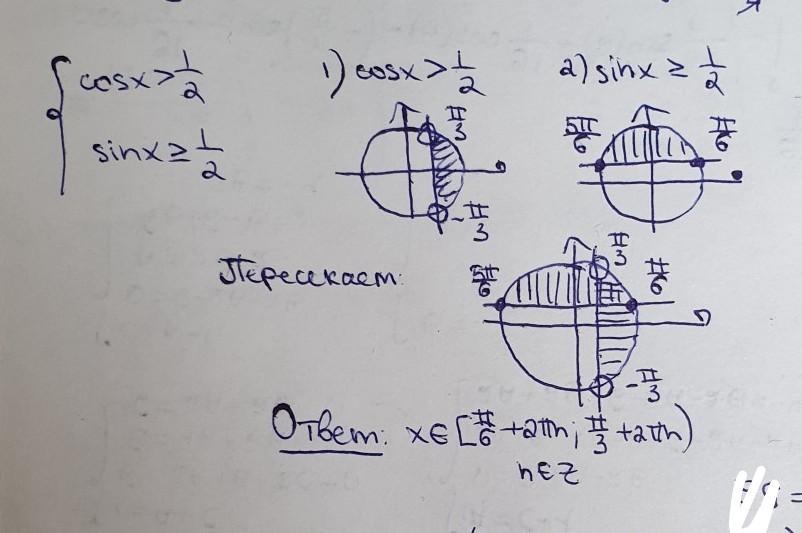 cosx > 1/2
sinx ≥ 1/2
1) cosx > 1/2
π/3
-π/3
2) sinx ≥ 1/2
5π/6
π/6
Пересекаем:
5π/6
π/3
π/6
-π/3
Ответ: x∈[π/6 +2πn; π/3 +2πn)
n∈Z